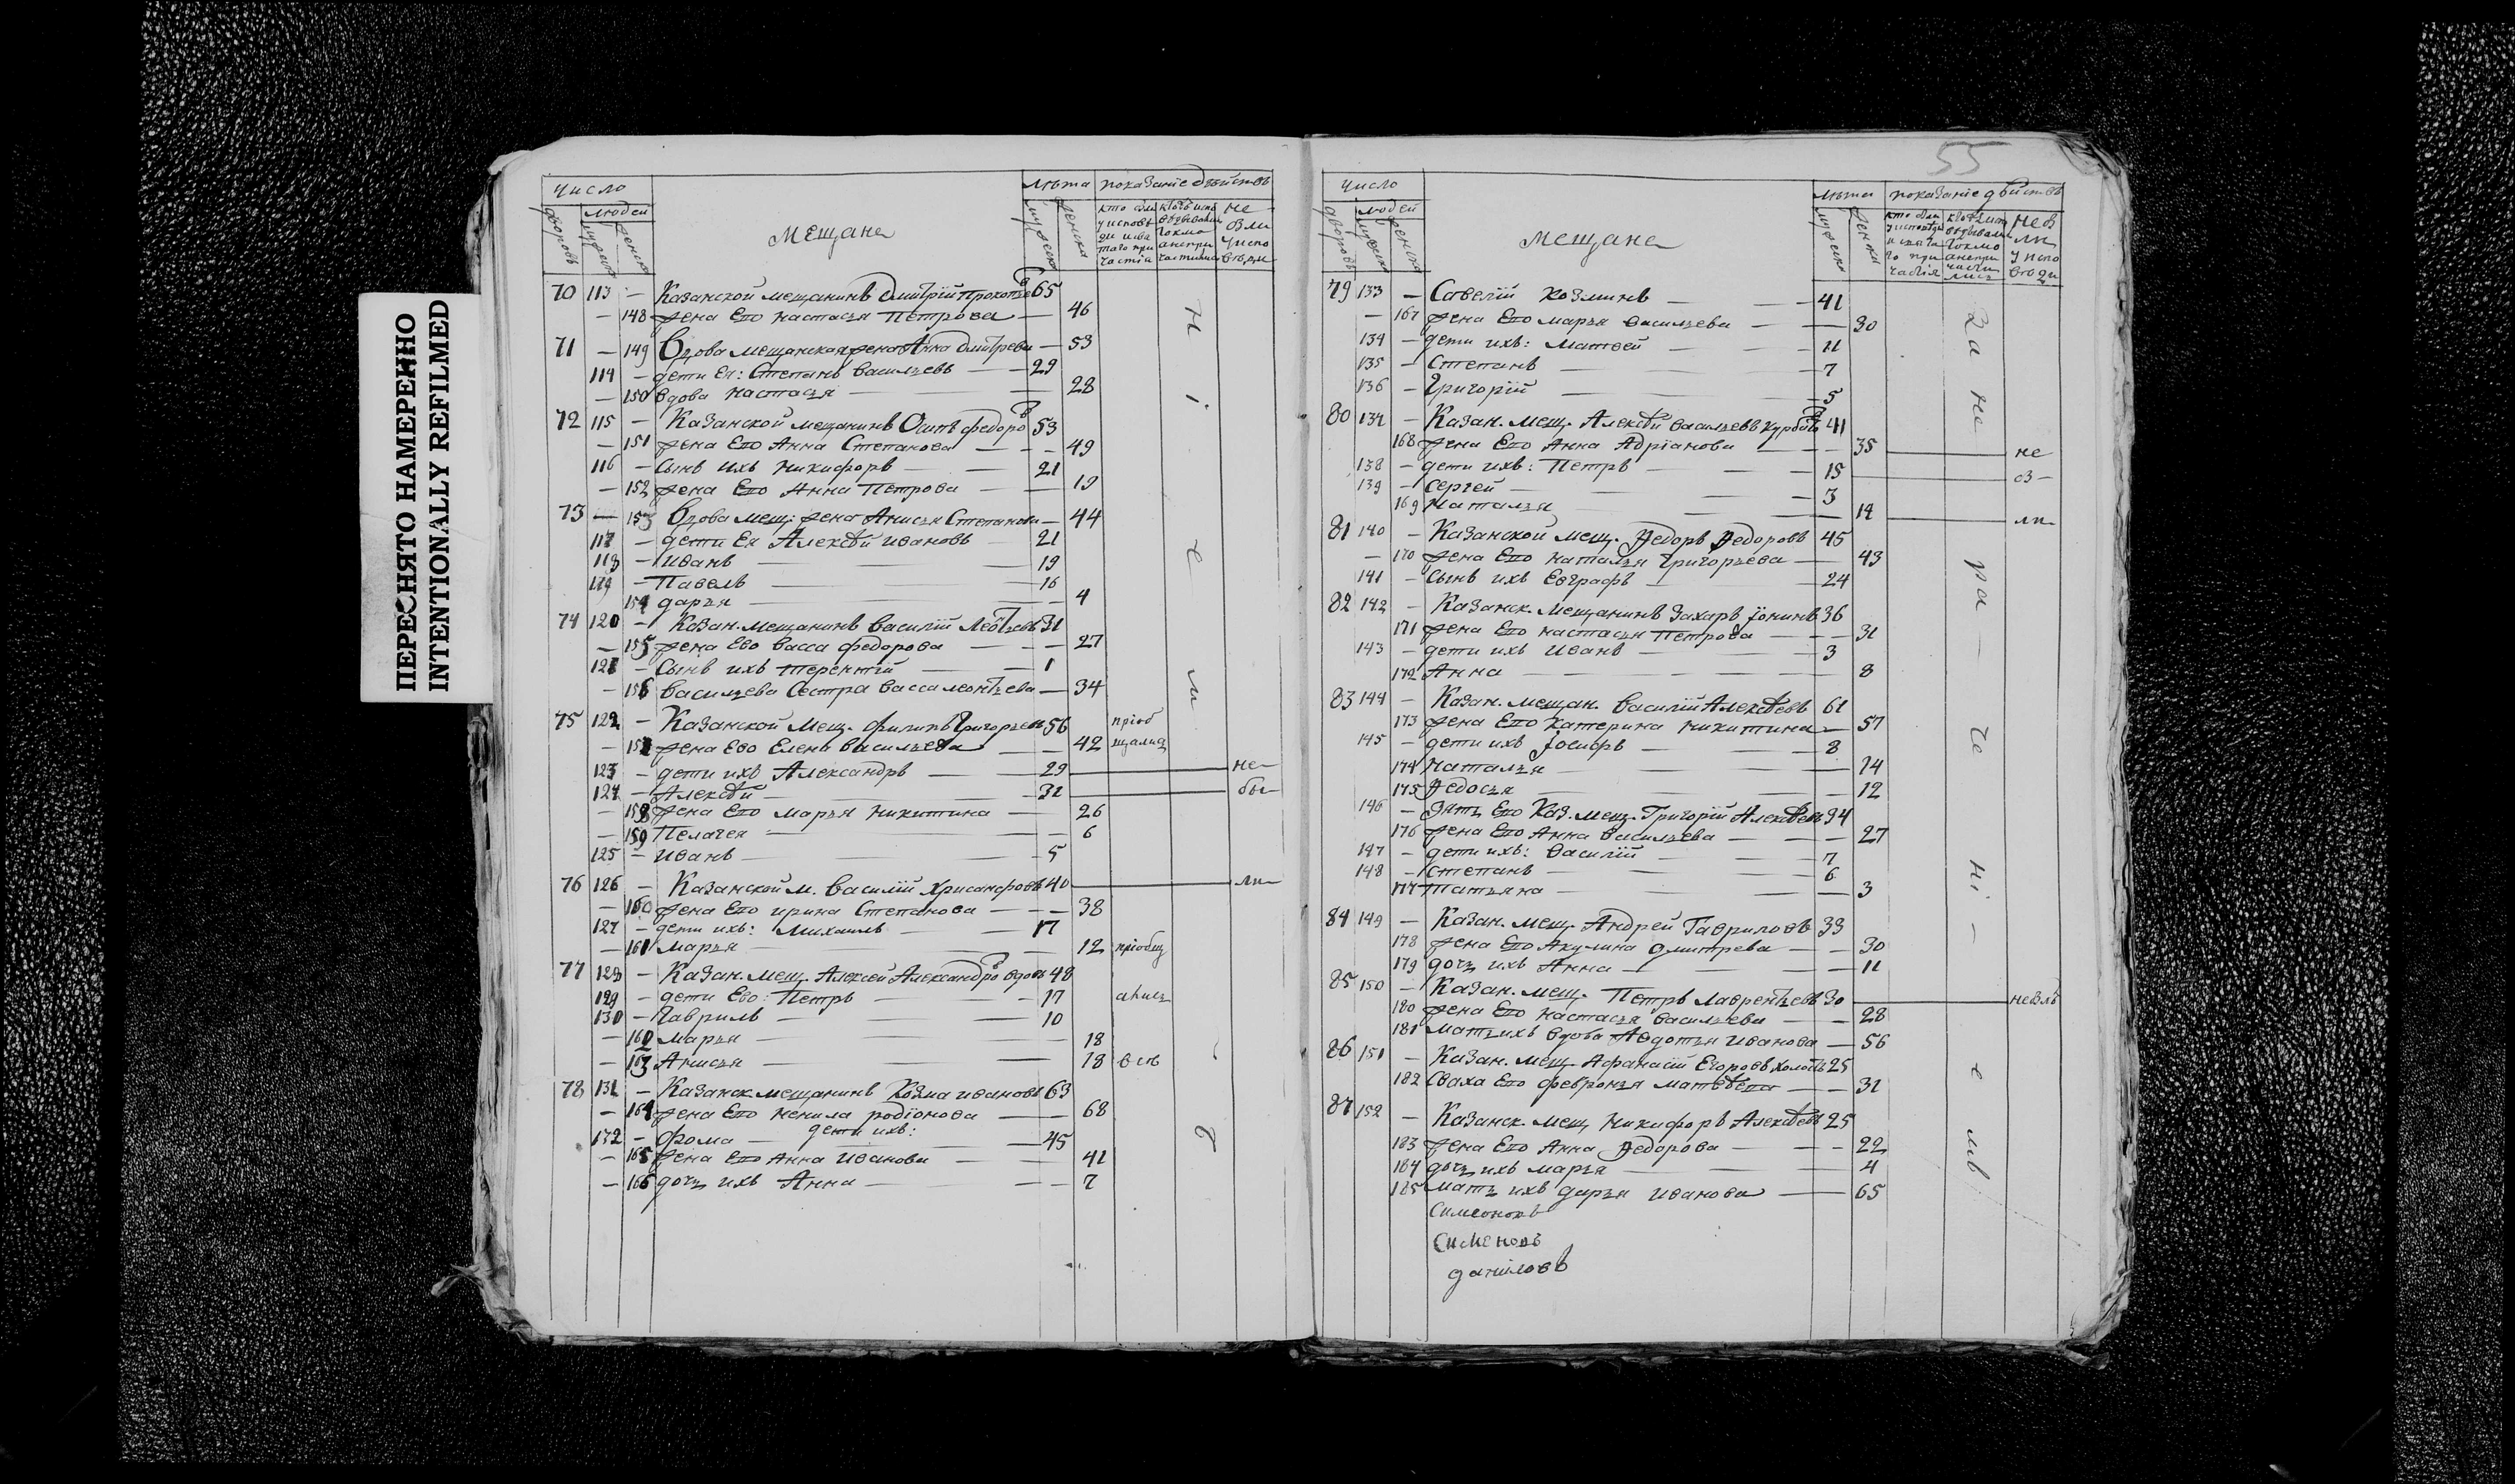 ПЕРЕСНЯТО НАМЕРЕННО
INTENTIONALLY REFILMED
Число
людей
дворовъ
мужеска
женска
мещане
лѣта
мужеска
женска
показанїе дѣйствъ
кто были
у исповѣ
ди и свя
таго при
частїа
не
были
у испо
вѣди
70 113 – Казанской мещанинъ Дмитрїй Прокопьевъ 65
– 148 жена Его настасья Петрова – 46
71 – 149 Вдова мещанская жена Анна Дмитрева – 53
114 – дети Ея: Степанъ васильевъ – 29
– 150 вдова настасья – 28
72 115 – Казанской мещанинъ Осипъ федоровъ 53
– 151 жена Его Анна Степанова – 49
116 – Сынъ ихъ никифоръ – 21
– 152 жена Его Анна Петрова – 19
73 – 153 Вдова мещ: жена Анисья Степанова – 44
117 – дети Ея Алексѣй ивановъ – 21
118 – иванъ – 19
119 – Павелъ – 16
154 дарья – 4
74 120 – Казан. мещанинъ василїй Леонтьевъ 31
– 155 жена Ево васса федорова – 27
121 – Сынъ ихъ терентїй – 1
– 156 васильева Сестра васса леонтьева – 34
75 122 – Казанской мещ. филипъ Григорьевъ 56 прїоб
– 157 жена Ево Елена васильева – 42 щались
123 – дети ихъ Александръ – 29 – не
124 – Алексѣй – 32 – бы
– 158 жена Его марья никитина – 26
– 159 Пелагея – 6
125 – иванъ – 5
76 126 – Казанской м. василїй Хрисанфовъ 40 – ли
– 160 жена Его ирина Степанова – 38
127 – дети ихъ: михаилъ – 17
– 161 марья – 12 прїобщ
77 128 – Казан. мещ. Алексей Александровъ вдовъ 48
129 – дети Ево: Петръ – 17 ались
130 – Гаврилъ – 10
– 162 марья – 18
– 163 Анисья – 18 всѣ
78 131 – Казанск. мещанинъ Козма ивановъ 63
– 164 жена Его ненила родїонова – 68
дети ихъ:
132 – фома – 45
– 165 жена Его Анна иванова – 41
– 166 дочь ихъ Анна – 7
55
Число
людей
дворовъ
мужеска
женска
мещане
лѣта
мужеска
женска
показанїе дѣйствъ
79 133 – Савелїй козминъ – 41
– 167 жена Его марья васильева – 30
134 – дети ихъ: матвей – 11
135 – Степанъ – 7
136 – Григорїй – 5
80 137 – Казан. мещ. Алексѣй васильевъ 41
168 жена Его Анна Адрїанова – 35 – не
138 – дети ихъ: Петръ – 15
139 – Сергей – 3
169 Наталья – 14 – ли
81 140 – Казанской мещ. Ѳедоръ Ѳедоровъ 45
– 170 жена Его наталья Григорьева – 43
141 – Сынъ ихъ Евграфъ – 24
82 142 – Казанск. мещанинъ Захаръ Іонинъ 36
171 жена Его настасья Петрова – 31
143 – дети ихъ иванъ – 3
172 Анна – 8
83 144 – Казан. мещан. василїй Алексѣевъ 61
173 жена Его Катерина никитина – 57
145 – дети ихъ Іосифъ – 8
174 наталья – 14
175 Ѳедосья – 12
146 – Зять Его Каз. мещ. Григорїй Алексѣевъ 34
176 жена Его Анна васильева – 27
147 – дети ихъ: василїй – 7
148 – Степанъ – 6
177 татьяна – 3
84 149 – Казан. мещ. Андрей Гавриловъ 33
178 жена Его Акулина дмитрева – 30
179 дочь ихъ Анна – 11
85 150 – Казан. мещ. Петръ лаврентьевъ 30 – небылъ
180 жена Его настасья васильева – 28
181 мать ихъ вдова Авдотья иванова – 56
86 151 – Казан. мещ. Афанасїй Егоровъ холостъ 25
182 Сваха Его февронья матвѣева – 31
87 152 – Казанск. мещ. никифоръ Алексѣевъ 25
183 жена Его Анна Ѳедорова – 22
184 дочь ихъ марья – 4
185 мать ихъ дарья иванова – 65
Симеоновъ
Сименовъ
даниловъ